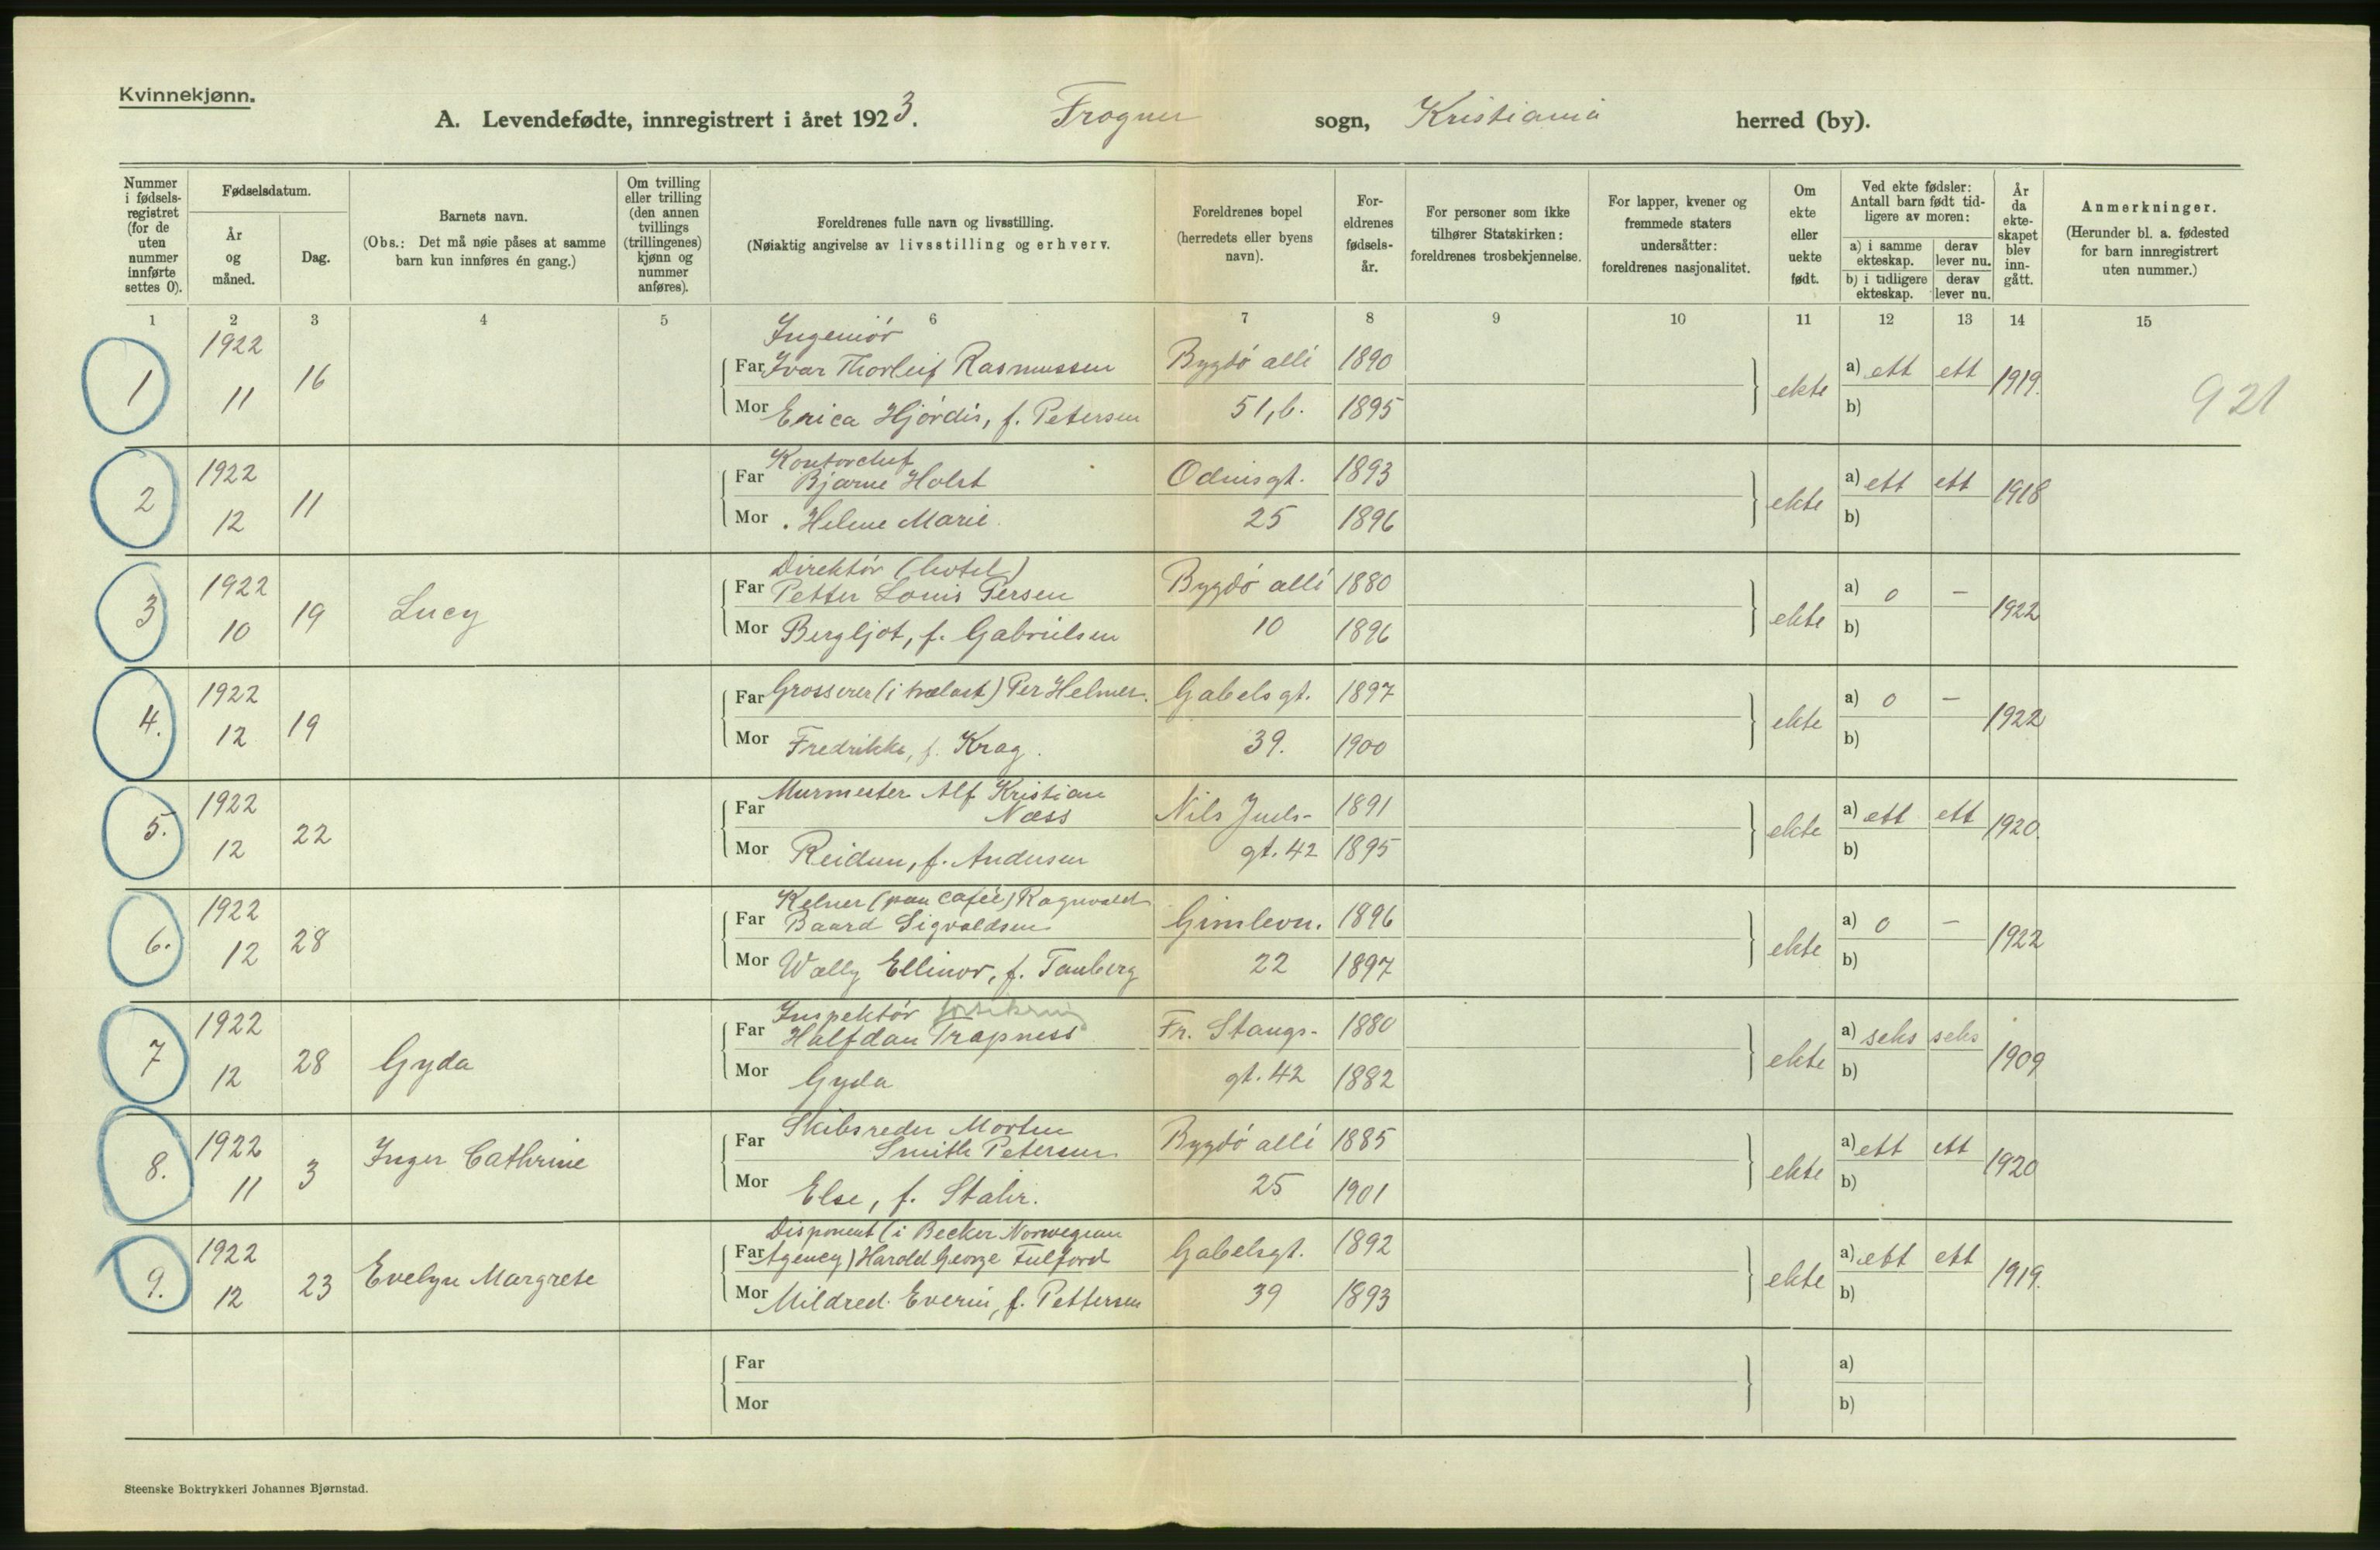 Kvinnekjønn.
A. Levendefødte, innregistrert i året 1923. Frogner sogn, Kristiania herred (by).
Nummer i fødsels-registret (for de uten nummer innførte settes 0).
Fødselsdatum.
År og måned.
Dag.
Barnets navn.
(Obs.: Det må nøie påses at samme barn kun innføres én gang.)
Om tvilling eller trilling (den annen tvillings (trillingenes) kjønn og nummer anføres).
Foreldrenes fulle navn og livsstilling.
(Nøiaktig angivelse av livsstilling og erhverv.
Foreldrenes bopel (herredets eller byens navn).
For-eldrenes fødsels-år.
For personer som ikke tilhører Statskirken: foreldrenes trosbekjennelse.
For lapper, kvener og fremmede staters undersåtter: foreldrenes nasjonalitet.
Om ekte eller uekte født.
Ved ekte fødsler: Antall barn født tid-ligere av moren:
a) i samme ekteskap.
derav lever nu.
b) i tidligere ekteskap.
derav lever nu.
År da ekte-skapet blev inn-gått.
Anmerkninger.
(Herunder bl. a. fødested for barn innregistrert uten nummer.)
1 2 3 4 5 6 7 8 9 10 11 12 13 14 15
Ingeniör
1 1922 11 16 Far Ivar Thorleif Rasmussen Bygdö allé 1890 ekte a) ett ett 1919. 921
Mor Erica Hjördis, f. Petersen 51, b. 1895 b)
Kontorchef
2 1922 12 11 Far Bjarne Holst Odinsgt. 1893 ekte a) ett ett 1918
Mor . Helene Marie. 25 1896 b)
Direktör (hotel)
3 1922 10 19 Lucy Far Petter Louis Persen Bygdö allé 1880 ekte a) 0 – 1922
Mor Bergljot, f. Gabrielsen 10 1896 b)
4. 1922 12 19 Far Grosserer (i trælast) Per Helmer. Gabelsgt. 1897 ekte a) 0 – 1922
Mor Fredrikke, f. Krag. 39. 1900 b)
Murmester Alf Kristian
5. 1922 12 22 Far Næss Nils Juels- 1891 ekte a) ett ett 1920.
Mor Reidun, f. Andersen gt. 42 1895 b)
Kelner (paa café) Ragnvald
6. 1922 12 28 Far Baard Sigvaldsen Gimlevn. 1896 ekte a) 0 – 1922
Mor Wally Ellinor, f. Tauberg 22 1897 b)
Inspektör forsikring
7 1922 12 28 Gyda Far Halfdan Trapness Fr. Stangs- 1880 ekte a) seks seks 1909
Mor Gyda gt. 42 1882 b)
Skibsreder Morten
8. 1922 11 3 Inger Cathrine Far Smith Petersen Bygdö allé 1885 ekte a) ett ett 1920
Mor Else, f. Stahr. 25 1901 b)
Disponent (i Becker Norwegian
9. 1922 12 23 Evelyn Margrete Far Agency) Harold George Fulford Gabelsgt. 1892 ekte a) ett ett 1919.
Mor Mildred f. Pettersen 39 1893 b)
Far a)
Mor b)
Steenske Boktrykkeri Johannes Bjørnstad.